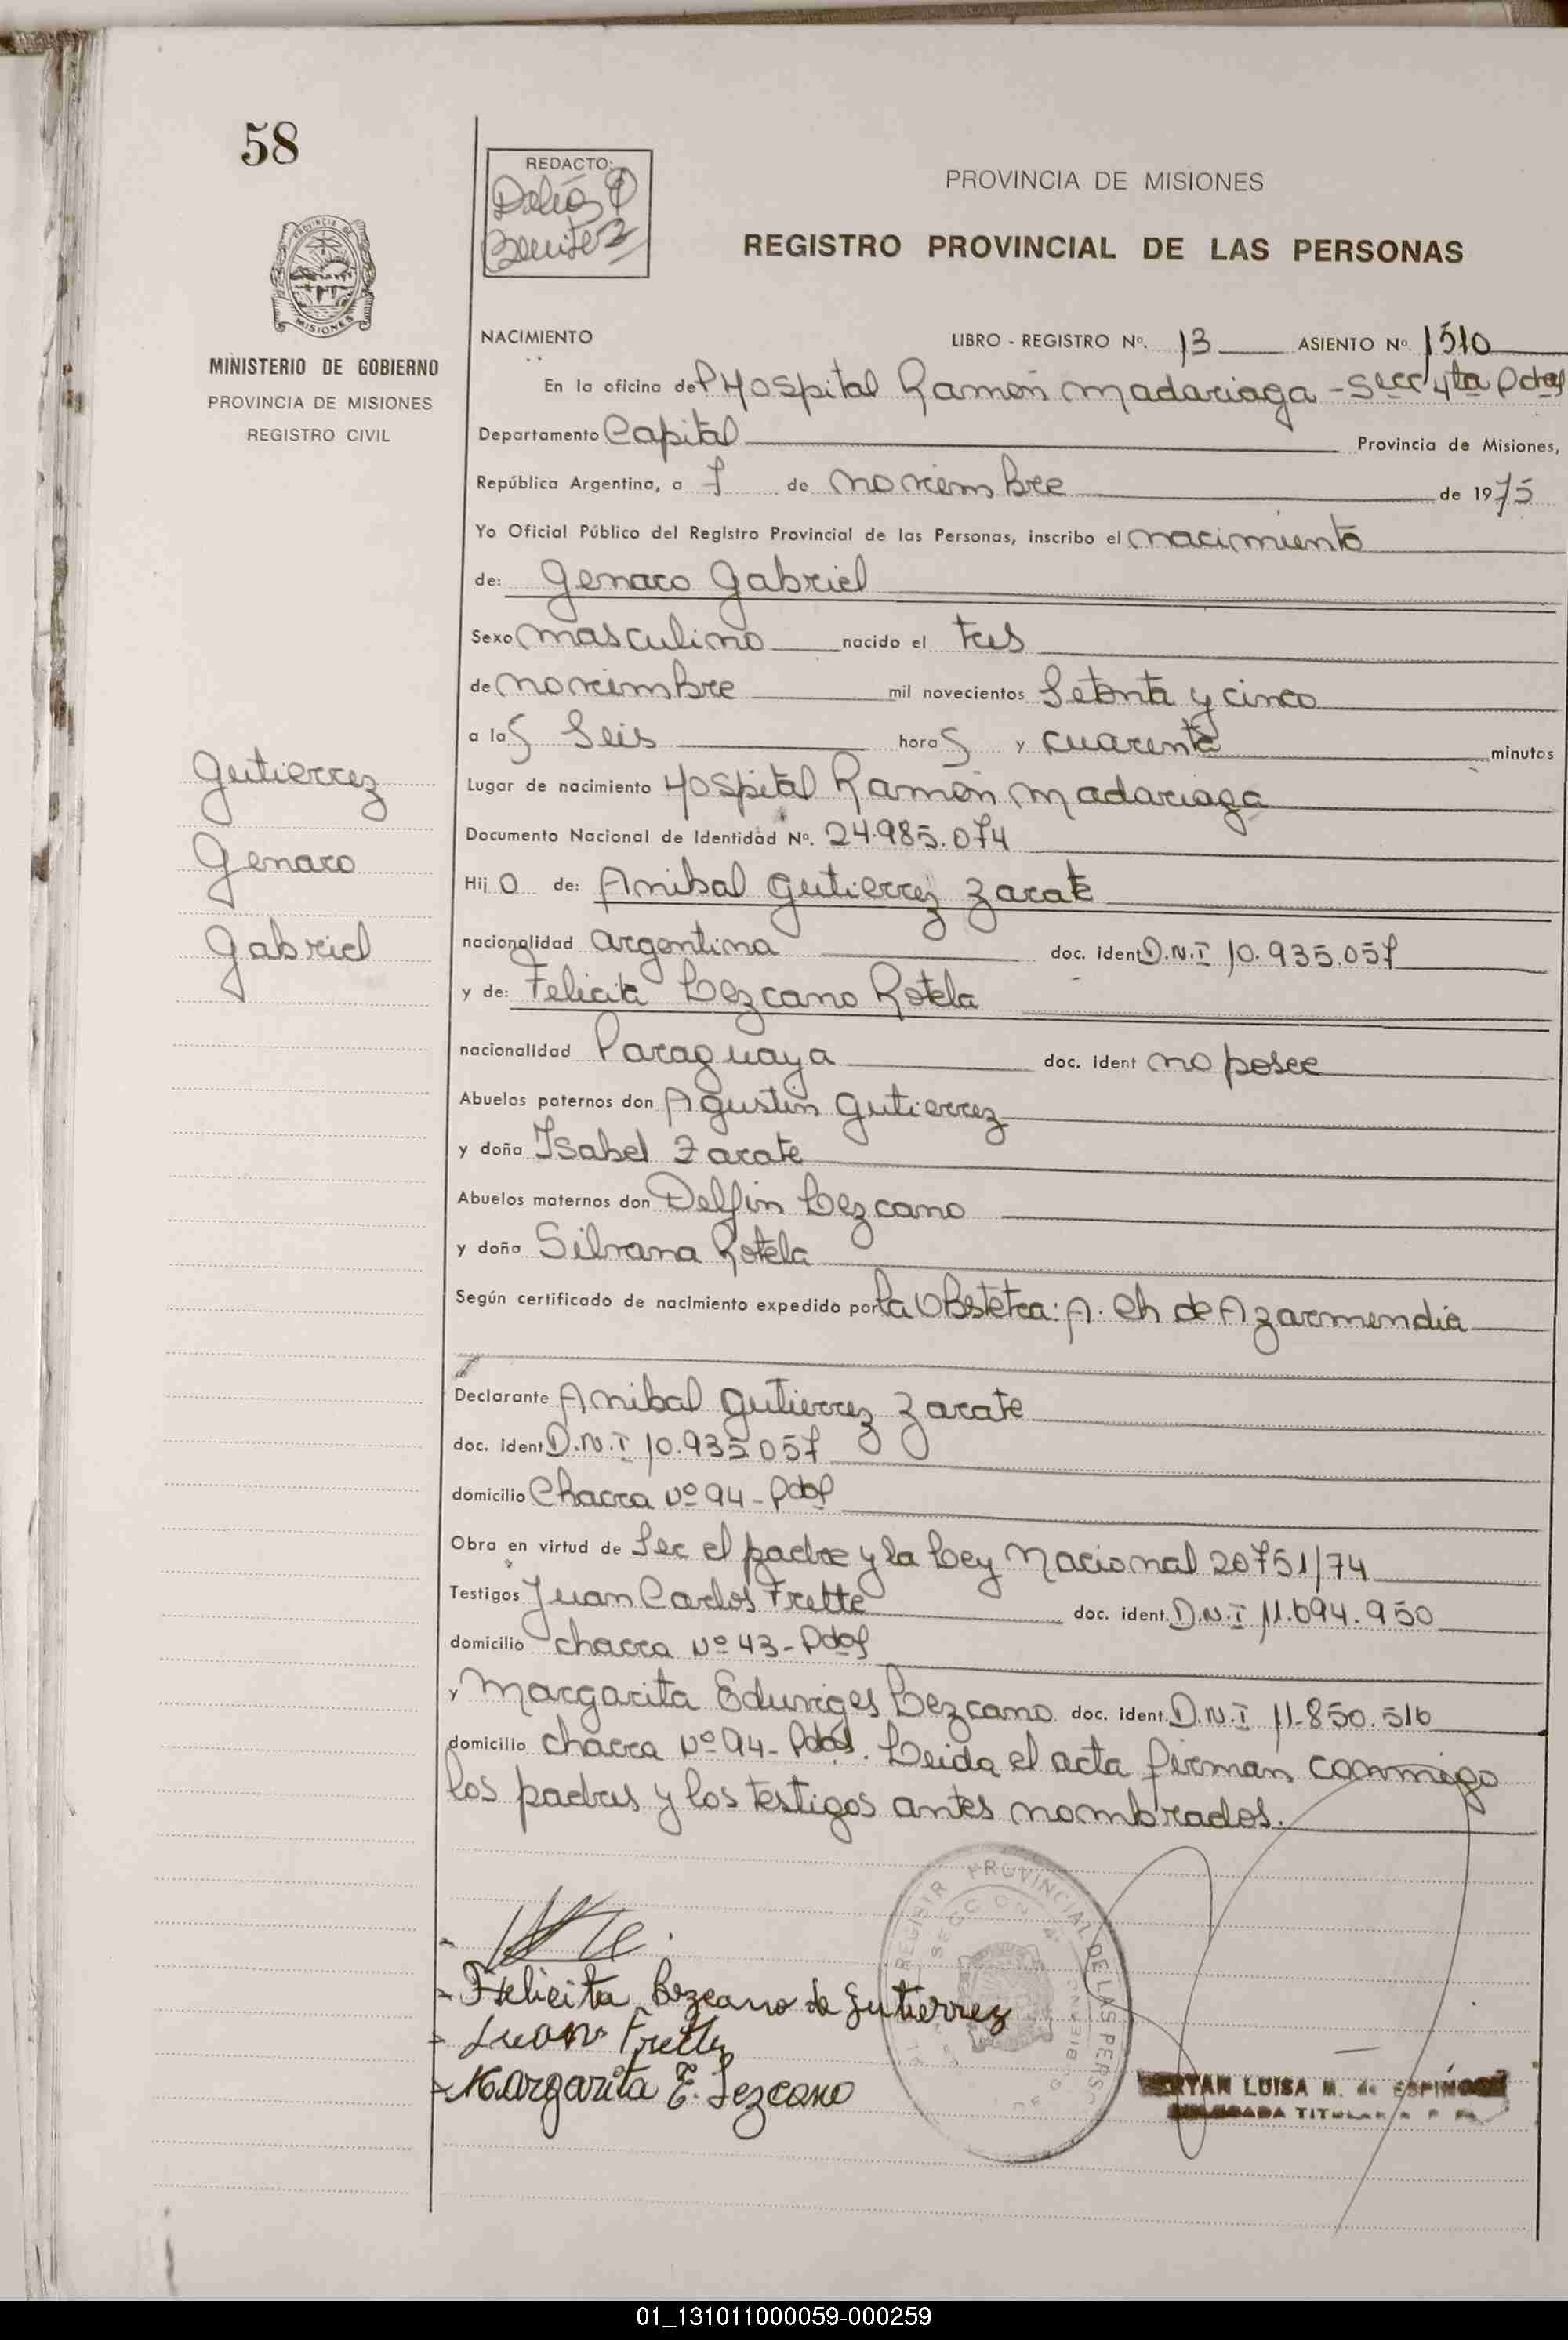 58
REDACTO:
Benitez
PROVINCIA DE MISIONES
REGISTRO PROVINCIAL DE LAS PERSONAS
PROVINCIA DE
MISIONES
MINISTERIO DE GOBIERNO
PROVINCIA DE MISIONES
REGISTRO CIVIL
NACIMIENTO LIBRO - REGISTRO Nº. 13 ASIENTO Nº. 1510
En la oficina del Hospital Ramón Madariaga - Secc 4ta Pdas
Departamento Capital Provincia de Misiones,
República Argentina, a 7 de noviembre de 1975
Yo Oficial Público del Registro Provincial de las Personas, inscribo el nacimiento
de: Genaro Gabriel
Sexo masculino nacido el tres
de noviembre mil novecientos setenta y cinco
a las seis horas y cuarenta minutos
Gutierrez
Genaro
Gabriel
Lugar de nacimiento Hospital Ramón Madariaga
Documento Nacional de Identidad Nº. 24.985.074
Hijo de: Anibal Gutierrez Zarate
nacionalidad argentina doc. ident D.N.I 10.935.057
y de: Felicita Lezcano Rotela
nacionalidad Paraguaya doc. ident no posee
Abuelos paternos don Agustin Gutierrez
y doña Isabel Zarate
Abuelos maternos don Delfin Lezcano
y doña Silvana Rotela
Según certificado de nacimiento expedido por la Obstetra: A. Ch de Azarmendia
Declarante Anibal Gutierrez Zarate
doc. ident D.N.I 10.935.057
domicilio Chacra Nº 94 - Pdas
Obra en virtud de ser el padre y la Ley Nacional 20751/74
Testigos Juan Carlos Frette doc. ident. D.N.I 11.694.950
domicilio chacra Nº 43 - Pdas
y Margarita Eduviges Lezcano doc. ident. D.N.I 11.850.516
domicilio chacra Nº 94 - Pdas. Leida el acta firman conmigo
los padres y los testigos antes nombrados.
REGISTR PROVINCIAL DE LAS PERS
SECCION 4ª
Felicita Lezcano de Gutierrez
Juan Frette
Margarita E. Lezcano
LUISA M. de ESPINOSA
01_131011000059-000259